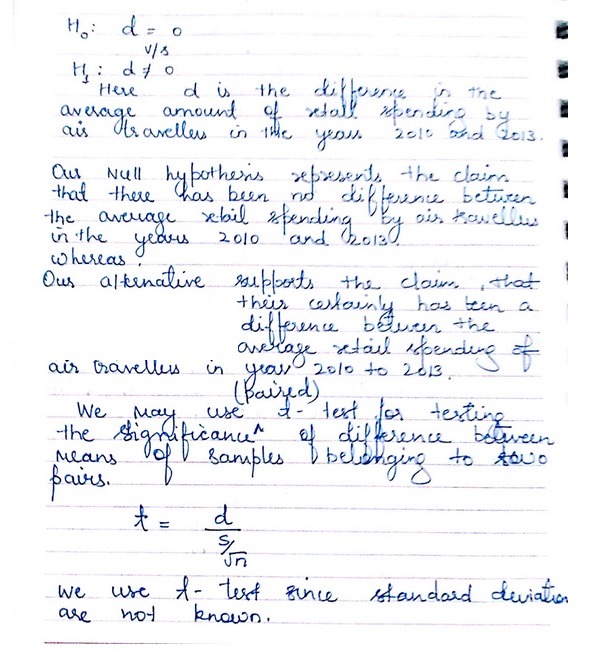 H₀: d = 0
v/s
H₁: d ≠ 0
Here d is the difference in the
average amount of retail spending by
air travellers in the years 2010 and 2013.
Our Null hypothesis represents the claim
that there has been no difference between
the average retail spending by air travellers
in the years 2010 and 2013.
whereas
Our alternative supports the claim, that
their certainly has been a
difference between the
average retail spending of
air travellers in year 2010 to 2013.
(paired)
We may use t-test for testing
the significance ^ of difference between
means of samples belonging to two
pairs.
t = d
S/√n
We use t-test since standard deviation
are not known.